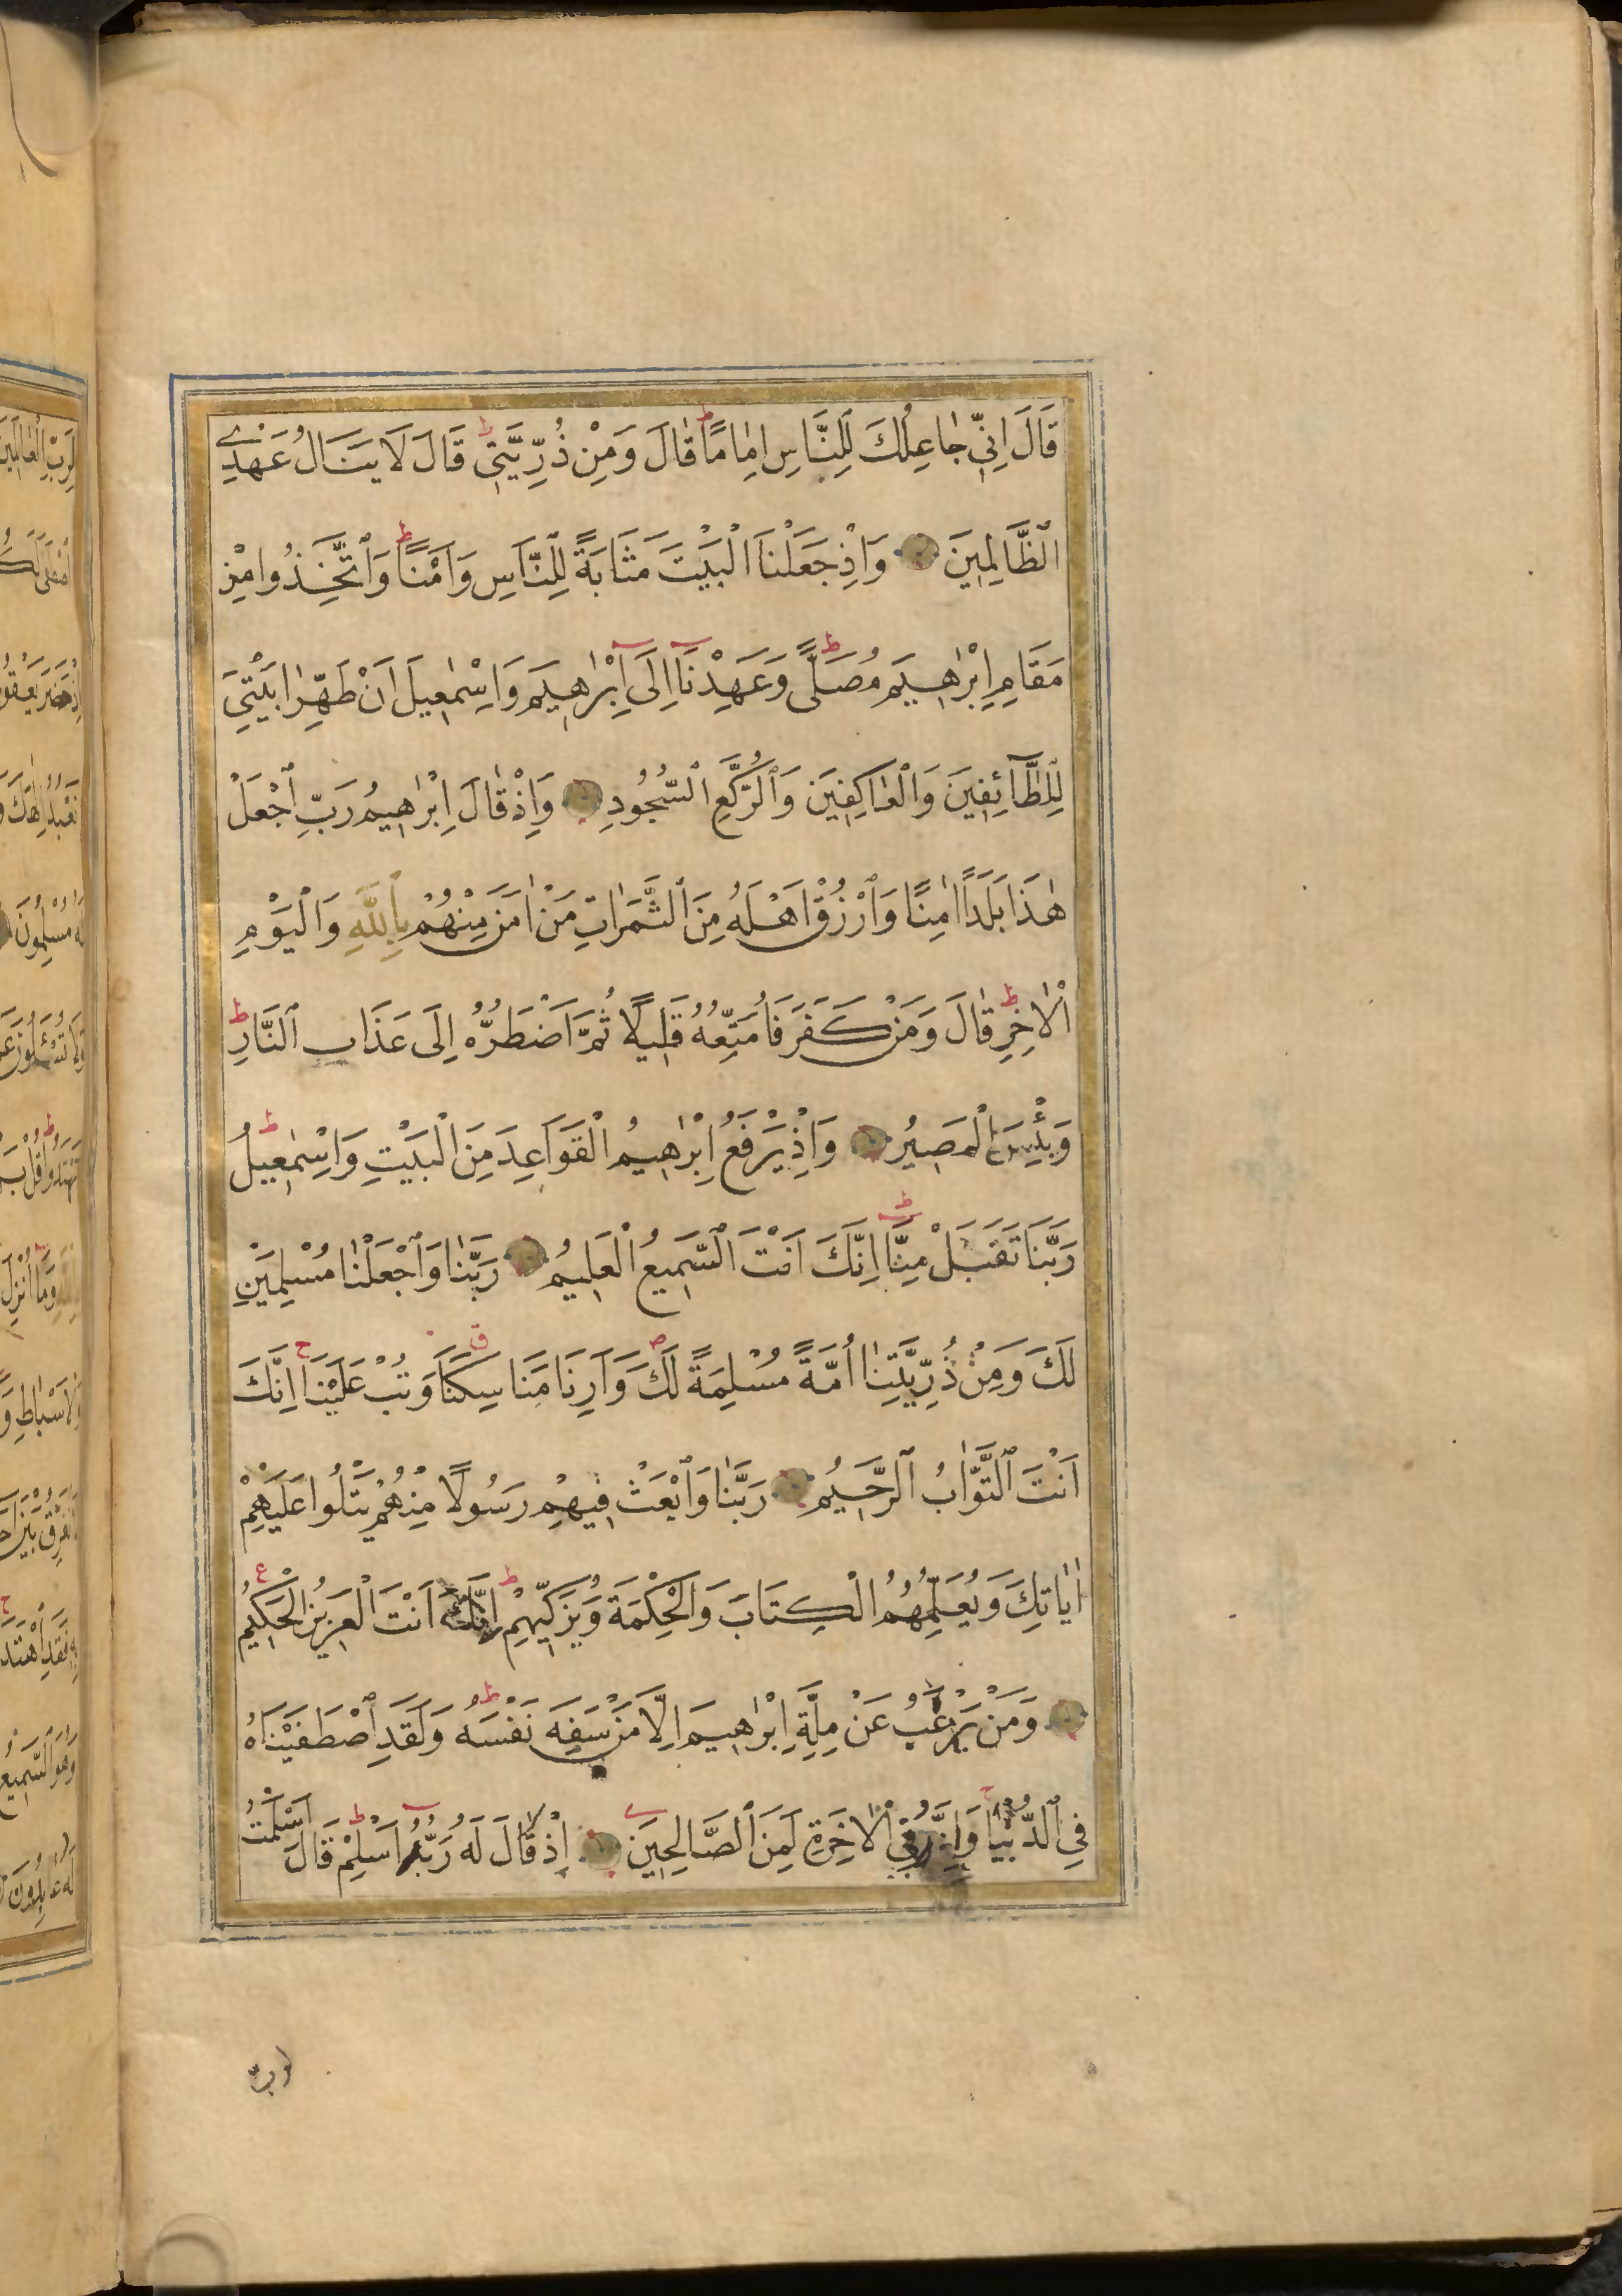 قَالَ اِنِّي جٰاعِلُكَ لِلنَّاسِ اِمٰامًا ط قٰالَ وَمِنْ ذُرِّيَّتِي ط قَالَ لَا يَنَالُ عَهْدِي
ٱلظَّالِمِينَ وَاِذْ جَعَلْنَا الْبَيْتَ مَثَابَةً لِلنَّاسِ وَاَمْنًا ط وَٱتَّخِذُوا مِنْ
مَقَامِ اِبْرٰاهِيمَ مُصَلًّى ط وَعَهِدْنَا اِلَى اِبْرٰاهِيمَ وَاِسْمٰعِيلَ اَنْ طَهِّرَا بَيْتِيَ
لِلطَّآئِفِينَ وَالْعٰاكِفِينَ وَٱلرُّكَّعِ ٱلسُّجُودِ وَاِذْ قٰالَ اِبْرٰهِيمُ رَبِّ ٱجْعَلْ
هٰذَا بَلَدًا اٰمِنًا وَٱرْزُقْ اَهْلَهُ مِنَ ٱلثَّمَرٰاتِ مَنْ اٰمَنَ مِنْهُمْ بِٱللّٰهِ وَالْيَوْمِ
الْاٰخِرِ ط قٰالَ وَمَنْ كَفَرَ فَاُمَتِّعُهُ قَلِيلًا ثُمَّ اَضْطَرُّهُ اِلَى عَذَابِ ٱلنَّارِ ط
وَبِئْسَ الْمَصِيرُ وَاِذْ يَرْفَعُ اِبْرٰهِيمُ الْقَوَاعِدَ مِنَ الْبَيْتِ وَاِسْمٰعِيلُ ط
رَبَّنَا تَقَبَّلْ مِنَّا ط اِنَّكَ اَنْتَ ٱلسَّمِيعُ الْعَلِيمُ رَبَّنٰا وَٱجْعَلْنٰا مُسْلِمَيْنِ
لَكَ وَمِنْ ذُرِّيَّتِنٰا اُمَّةً مُسْلِمَةً لَكَ ص وَاَرِنَا مَنَاسِكَنَا ق وَتُبْ عَلَيْنَا ج اِنَّكَ
اَنْتَ ٱلتَّوّٰابُ ٱلرَّحِيمُ رَبَّنٰا وَٱبْعَثْ فِيهِمْ رَسُولًا مِنْهُمْ يَتْلُوا عَلَيْهِمْ
اٰيٰاتِكَ وَيُعَلِّمُهُمُ الْكِتَابَ وَالْحِكْمَةَ وَيُزَكِّيهِمْ ط اِنَّكَ اَنْتَ الْعَزِيزُ الْحَكِيمُ ع
وَمَنْ يَرْغَبُ عَنْ مِلَّةِ اِبْرٰهِيمَ اِلَّا مَنْ سَفِهَ نَفْسَهُ ط وَلَقَدِ ٱصْطَفَيْنَاهُ
فِي ٱلدُّنْيٰا ج وَاِنَّهُ فِي الْاٰخِرَةِ لَمِنَ ٱلصَّالِحِينَ اِذْ قَالَ لَهُ رَبُّهُ اَسْلِمْ ط قَالَ اَسْلَمْتُ